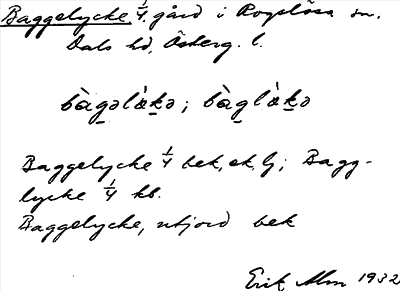 Baggelycke 1/4 gård i Rogslösa sn.
Dals hd, Österg. l.
bàgəlỳḵə; bàglỳḵə
Baggelycke 1/4 bek, ek, lj; Bagg-
lycke 1/4 kb.
Baggelycke, utjord bek
Erik Alm 1932